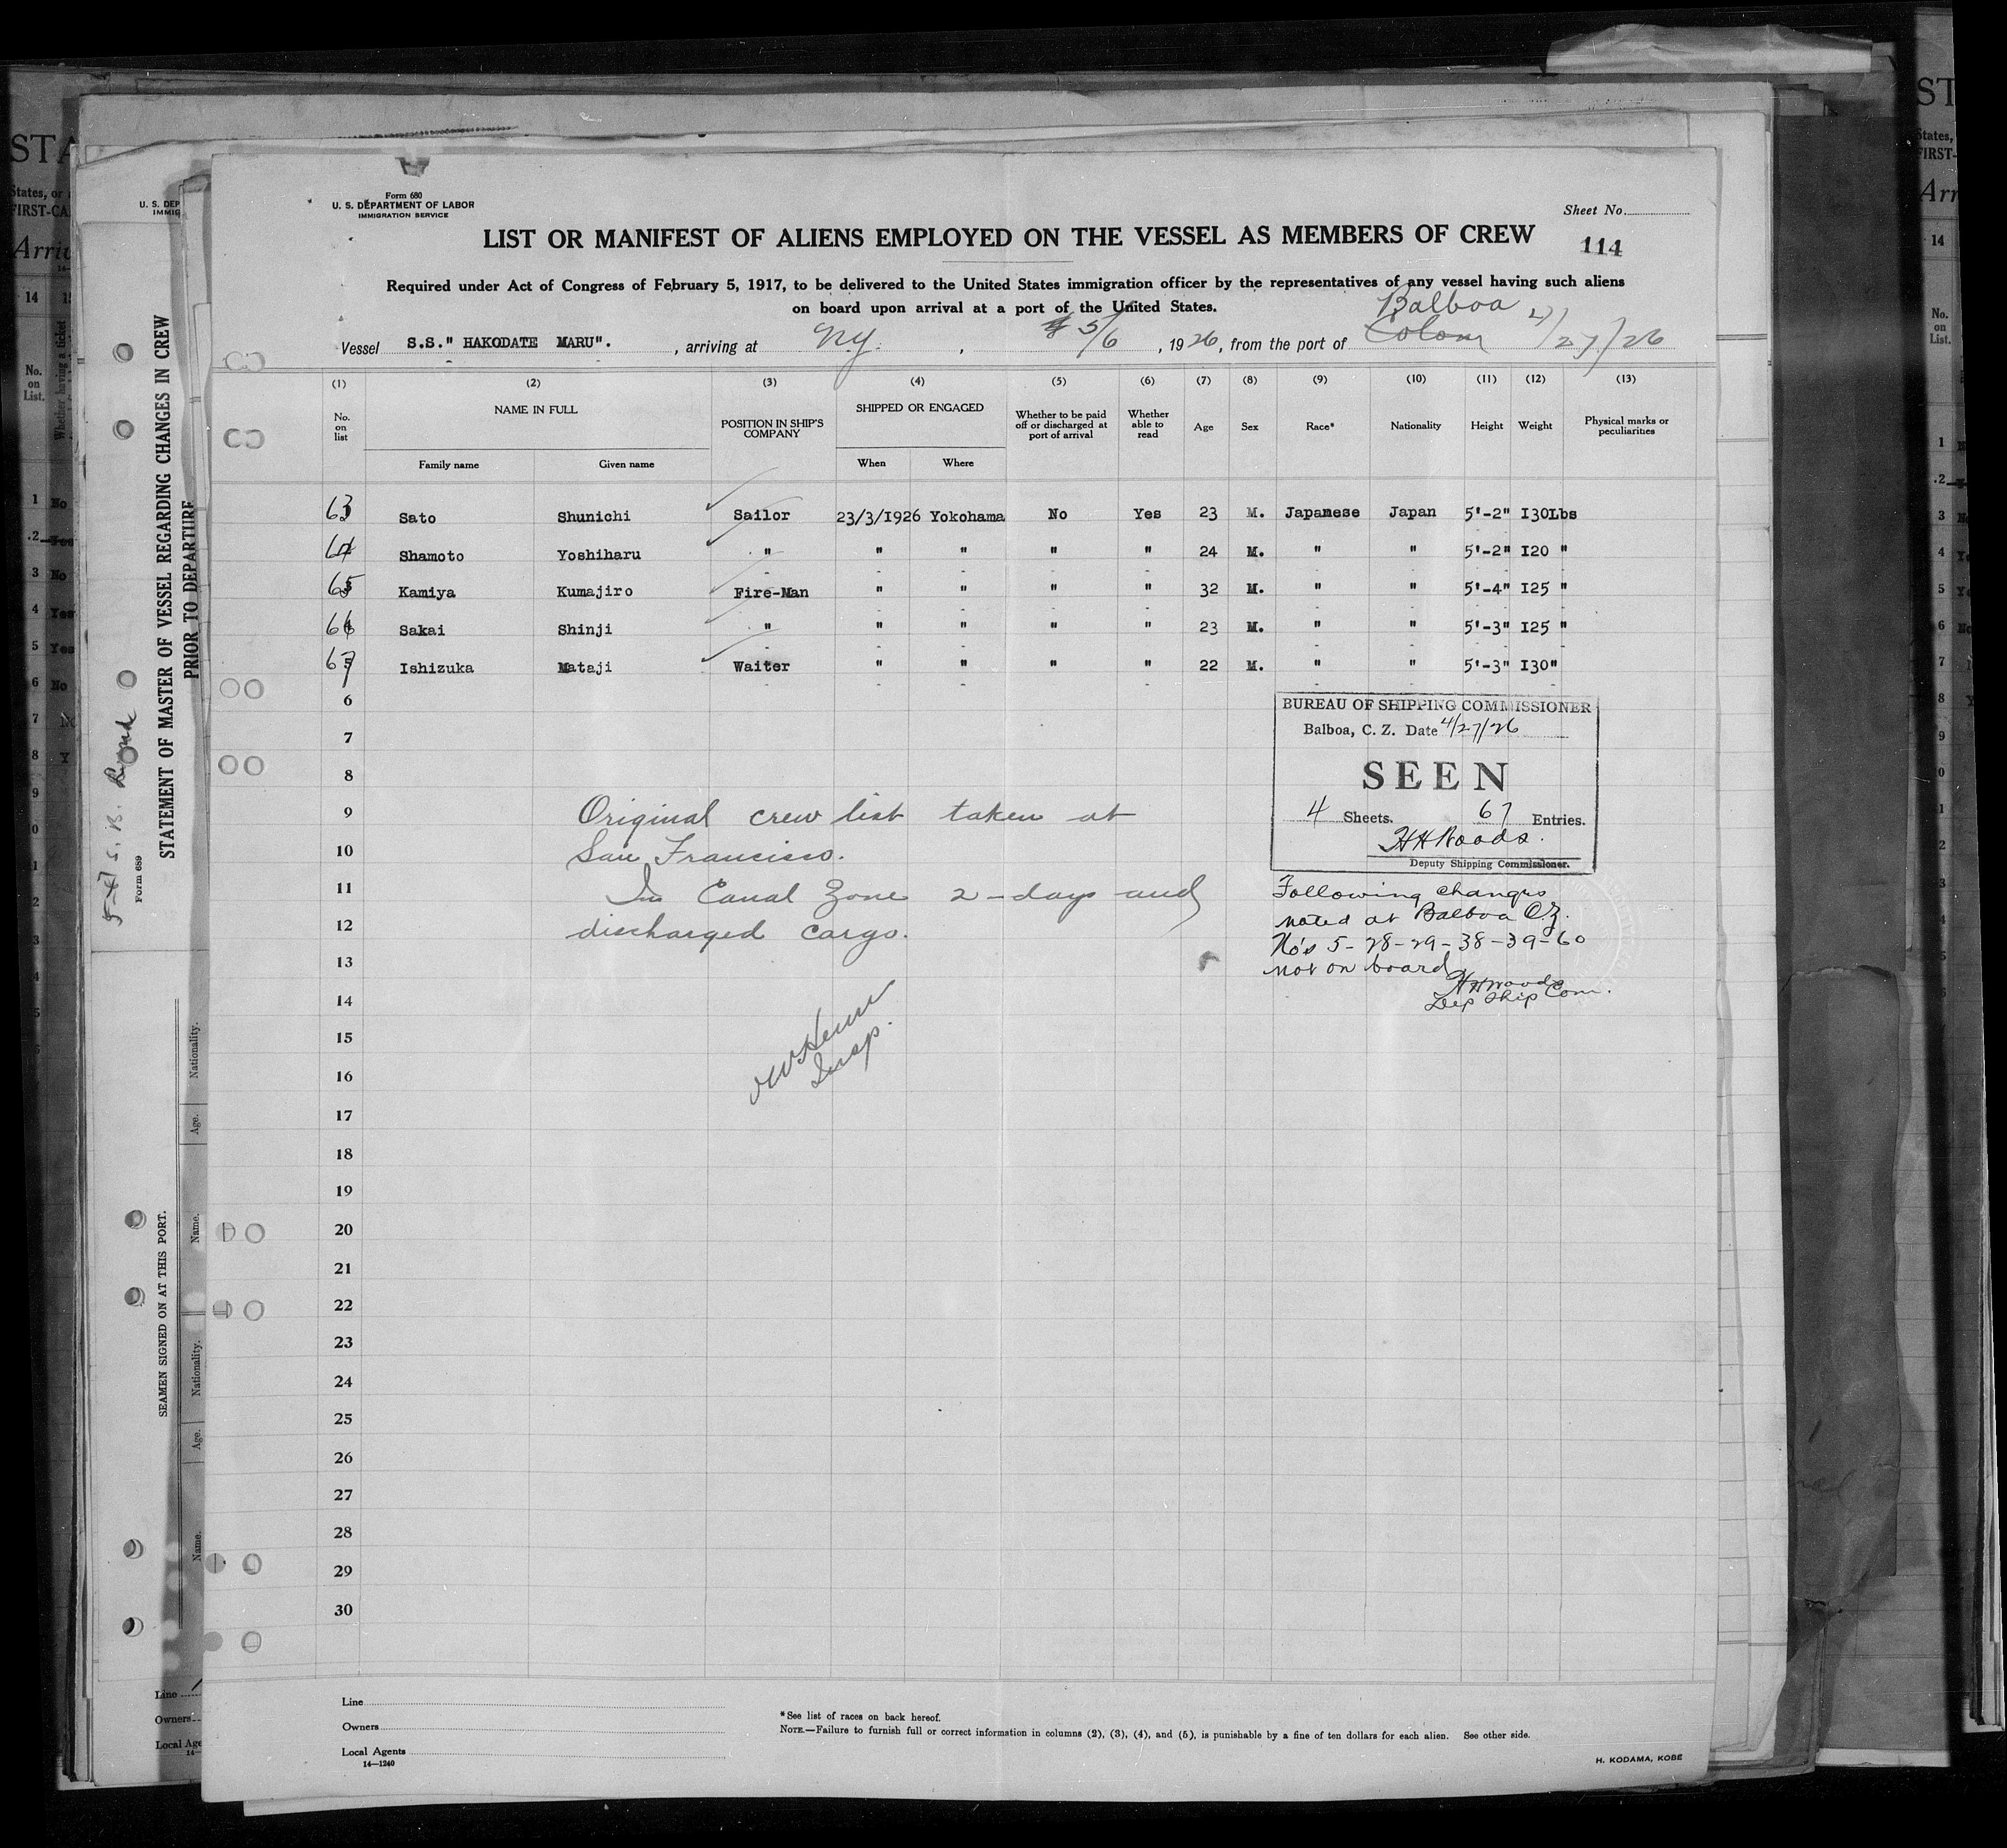 Form 680
U. S. DEPARTMENT OF LABOR
IMMIGRATION SERVICE
Sheet No.
LIST OR MANIFEST OF ALIENS EMPLOYED ON THE VESSEL AS MEMBERS OF CREW
114
Required under Act of Congress of February 5, 1917, to be delivered to the United States immigration officer by the representatives of any vessel having such aliens
on board upon arrival at a port of the United States.
Balboa
Vessel S.S." HAKODATE MARU". , arriving at N.Y. , 5/6 , 1926, from the port of Colon 4/27/26
(1) (2) (3) (4) (5) (6) (7) (8) (9) (10) (11) (12) (13)
No. on list NAME IN FULL POSITION IN SHIP'S COMPANY SHIPPED OR ENGAGED Whether to be paid off or discharged at port of arrival Whether able to read Age Sex Race* Nationality Height Weight Physical marks or peculiarities
Family name Given name When Where
63 Sato Shunichi Sailor 23/3/1926 Yokohama No Yes 23 M. Japanese Japan 5'-2" I30Lbs
64 Shamoto Yoshiharu " " " " " 24 M. " " 5'-2" I20 "
65 Kamiya Kumajiro Fire-Man " " " " 32 M. " " 5'-4" I25 "
66 Sakai Shinji " " " " " 23 M. " " 5'-3" I25 "
67 Ishizuka Mataji Waiter " " " " 22 M. " " 5'-3" I30"
6
7
8
9
10
11
12
13
14
15
16
17
18
19
20
21
22
23
24
25
26
27
28
29
30
BUREAU OF SHIPPING COMMISSIONER
Balboa, C. Z. Date 4/27/26
SEEN
4 Sheets. 67 Entries.
HH Woods.
Deputy Shipping Commissioner.
Original crew list taken at
San Francisco.
In Canal Zone 2-days and
discharged cargo.
Insp.
Following changes
noted at Balboa C.Z.
No's 5-28-29-38-39-60
not on board
HH Woods
Dep Ship Com.
Line
Owners
Local Agents
14—1240
*See list of races on back hereof.
NOTE.—Failure to furnish full or correct information in columns (2), (3), (4), and (5), is punishable by a fine of ten dollars for each alien. See other side.
H. KODAMA, KOBE
STATEMENT OF MASTER OF VESSEL REGARDING CHANGES IN CREW
PRIOR TO DEPARTURE
Form 689
SEAMEN SIGNED ON AT THIS PORT.
Nationality.
Age.
Name.
Nationality.
Age.
Name.
Line
Owners